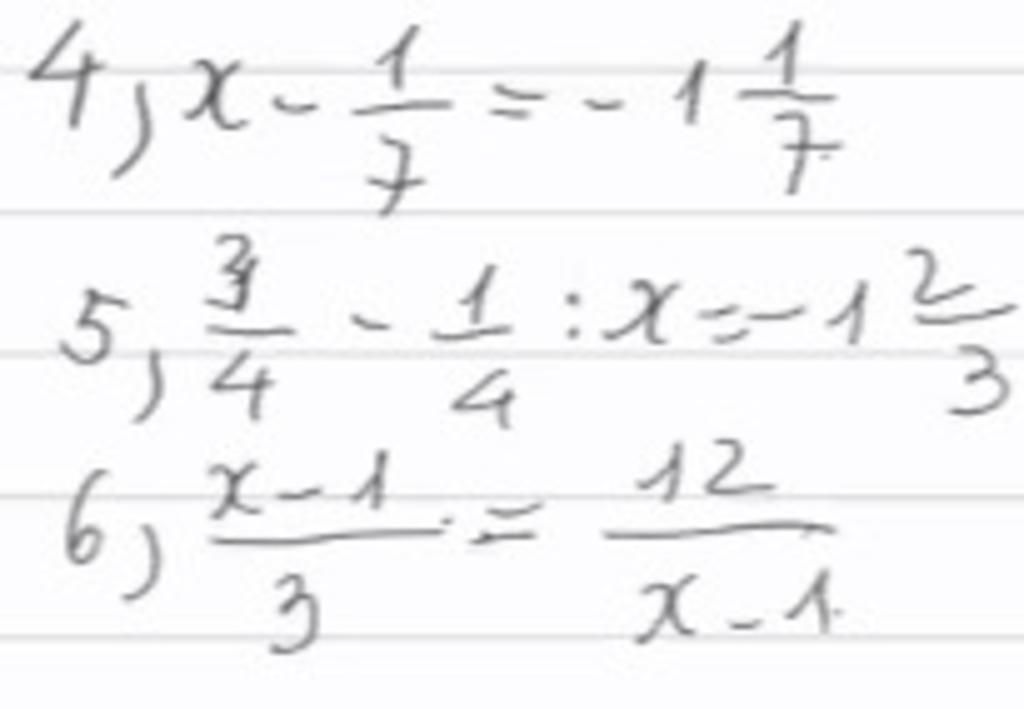 4, x - 1/7 = - 1 1/7
5, 3/4 - 1/4 : x = - 1 2/3
6, (x - 1)/3 = 12/(x - 1)